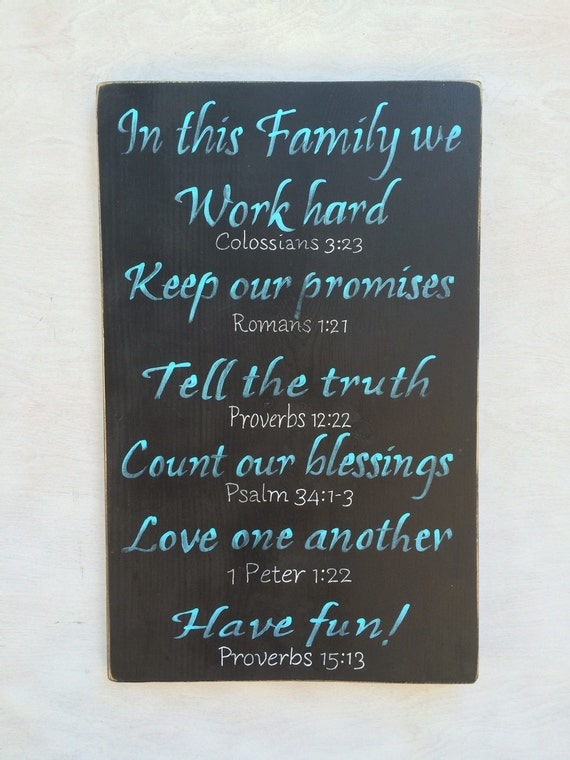 In this Family we
Work hard
Colossians 3:23
Keep our promises
Romans 1:21
Tell the truth
Proverbs 12:22
Count our blessings
Psalm 34:1-3
Love one another
1 Peter 1:22
Have fun!
Proverbs 15:13